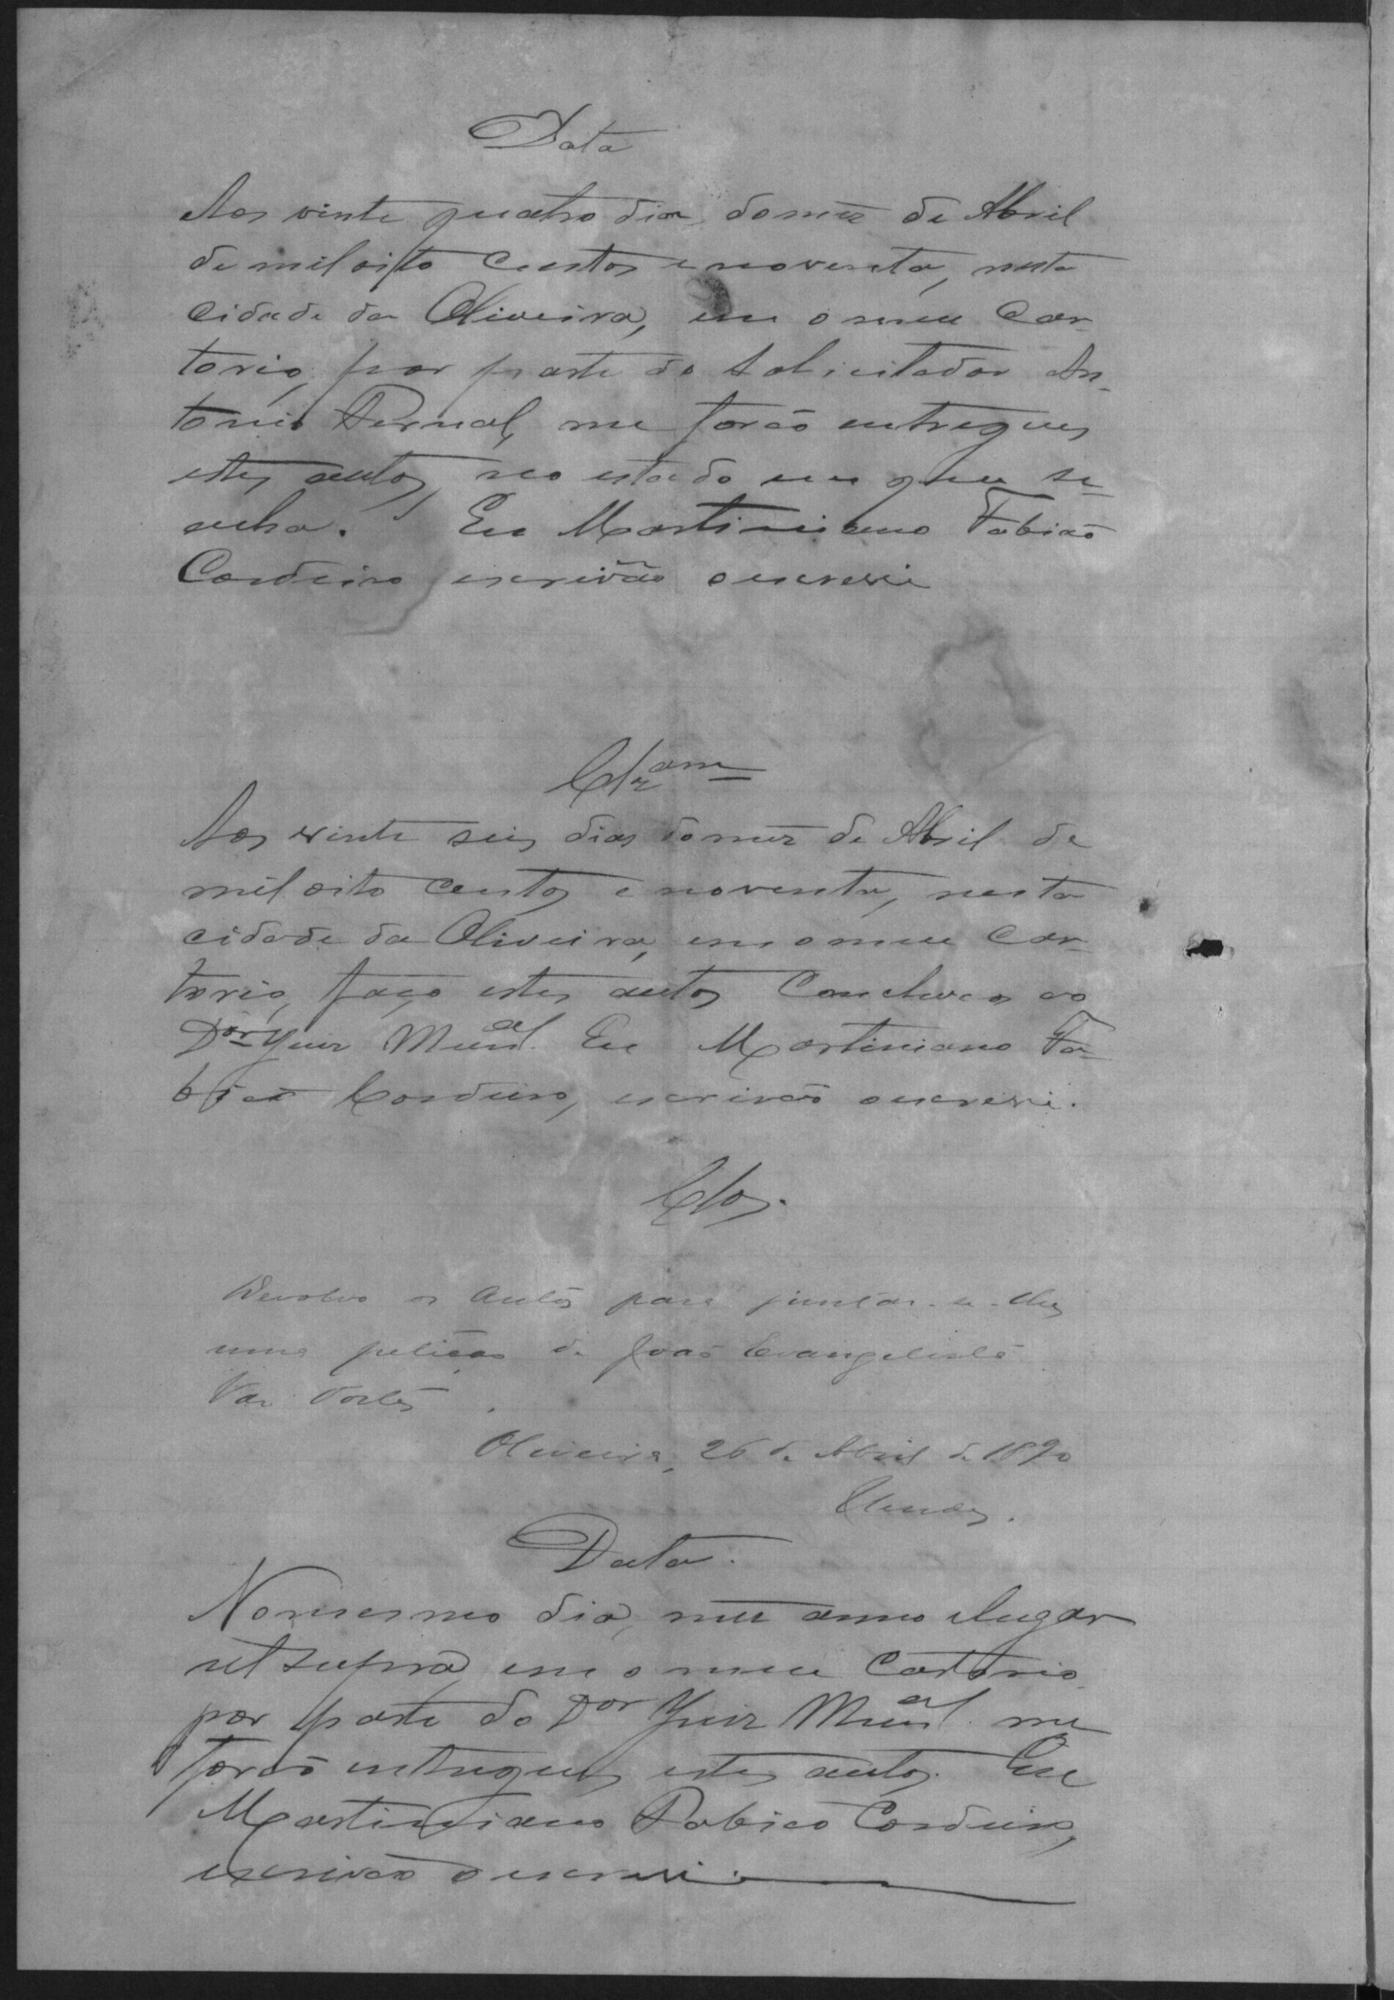 Data
Aos vinte quatro dias do mez de Abril
de mil oito centos e noventa, nesta
cidade da Oliveira, em o meu Car-
torio, por parte do Solicitador An-
tonio Bernal, me forão entregues
estes autos, no estado em que se
acha. Eu Martiniano Fabião
Cordeiro escrivão o escrevi
Clzam
Aos vinte seis dias do mez de Abril de
mil oito centos e noventa, nesta
cidade da Oliveira, em o meu Car-
torio, faço estes autos Conclusos ao
Dor Juiz Munal. Eu Martiniano Fa-
bião Cordeiro, escrivão o escrevi.
Clos.
Devolvo os autos para juntar-se-lhes
uma petição de João Evangelista
Vaz
Oliveira, 26 de Abril de 1890
Mendes.
Data.
No mesmo dia, mez anno e lugar
ut supra, em o meu Catorio
por parte do Dor Juiz Munal. me
forão entregues estes autos. Eu
Martiniano Fabião Cordeiro,
escrivão o escrevi.